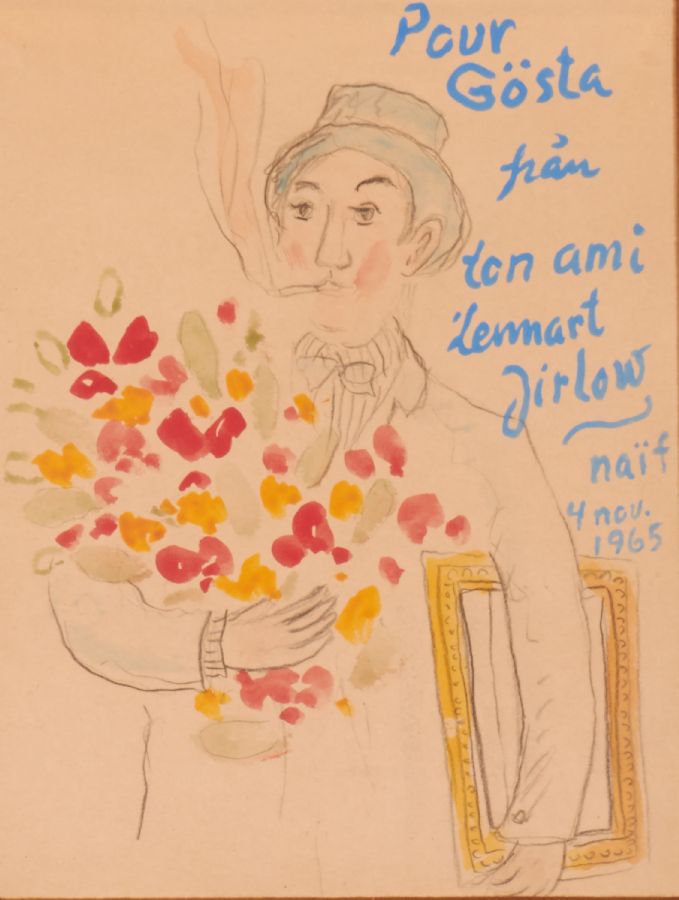 Pour
Gösta
från
ton ami
Lennart
Jirlow
naïf
4 nov.
1965